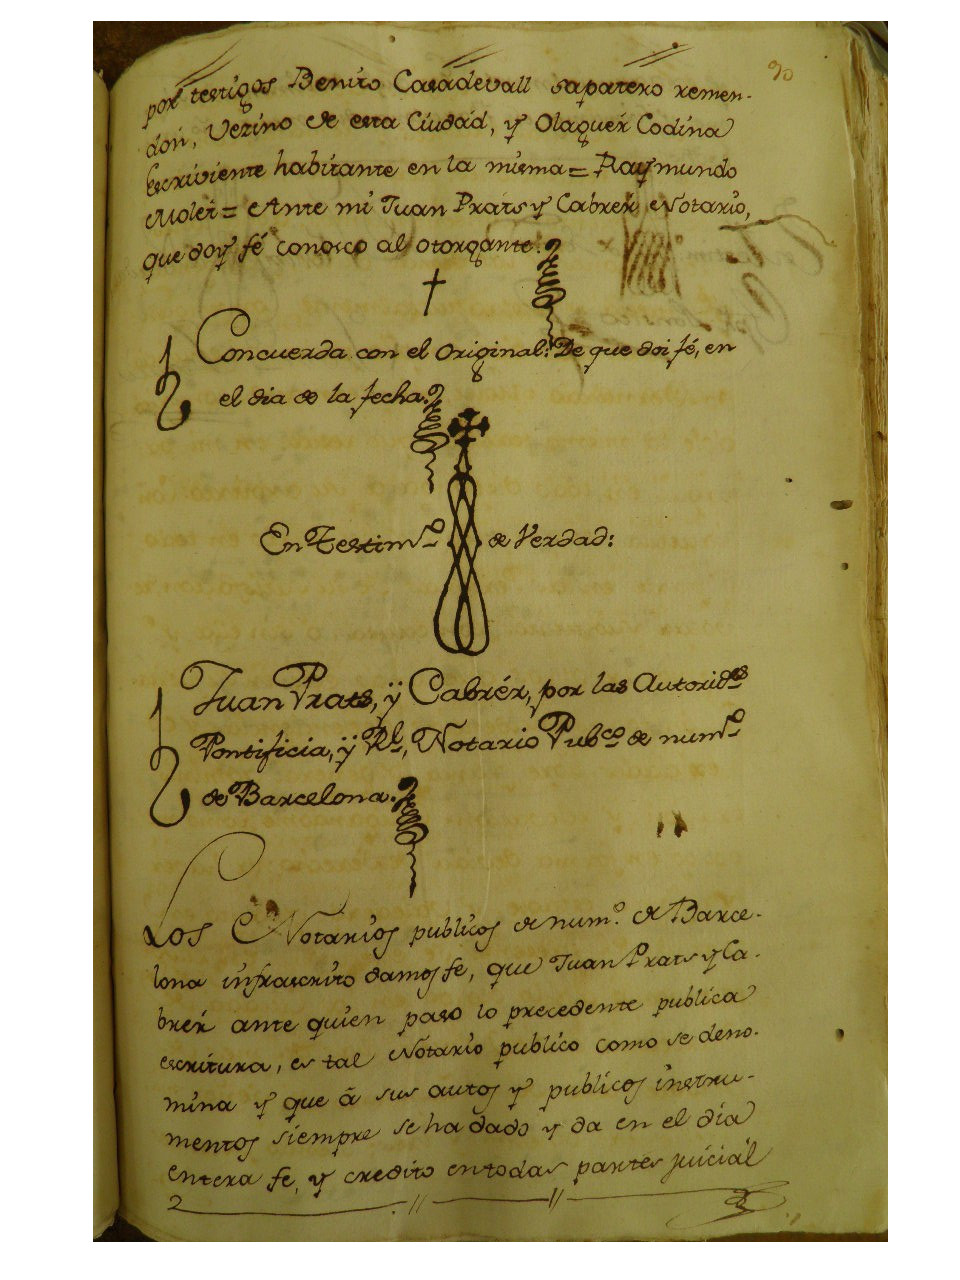 90
por testigos Benito Casadevall sapatero remen-
don, Vezino de esta Ciudad, y Olaguer Codina
Escriviente habitante en la misma = Raymundo
Moler = Ante mi Juan Prats y Cabrer Notario,
que doy fé conosco al otorgante.
Concuerda con el Original: De que doi fé, en
el dia de la fecha.
En Testim.º de Verdad:
Juan Prats, ÿ Cabrér, por las Autorid.es
Pontificia, ÿ R.l, Notario Pub.co de num.º
de Barcelona.
Los Notarios publicos de num.º de Barce-
lona infrascrito damos fe, que Juan Prats y Ca-
brer ante quien paso lo precedente publica
escritura, es tal Notario publico como se deno-
mina y que â sus autos y publicos instru-
mentos siempre se ha dado y da en el dia
entera fe, y credito en todas partes juicial